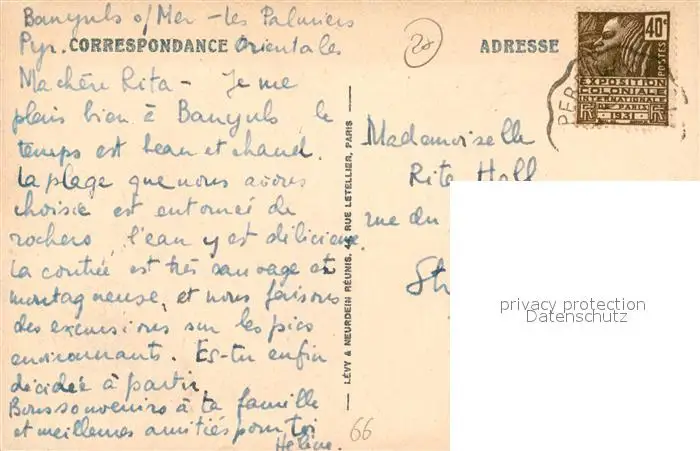 Banyuls s/Mer - les Palmiers
Pyr. Orientales
CORRESPONDANCE
Ma chère Rita - Je me
plais bien à Banyuls, le
temps est beau et chaud.
La plage que nous avons
choisie est entourée de
rochers, l'eau y est délicieuse.
La contrée est très sauvage et
montagneuse, et nous faisons
des excursions sur les pics
environnants. Es-tu enfin
décidée à partir.
Bons souvenirs à ta famille
et meilleures amitiés pour toi
Hélène.
66
LÉVY & NEURDEIN RÉUNIS, 44, RUE LETELLIER, PARIS
ADRESSE
40c
POSTES
EXPOSITION
COLONIALE
INTERNATIONALE
PARIS
1931
PER
Mademoiselle
Rita
rue du
privacy protection
Datenschutz